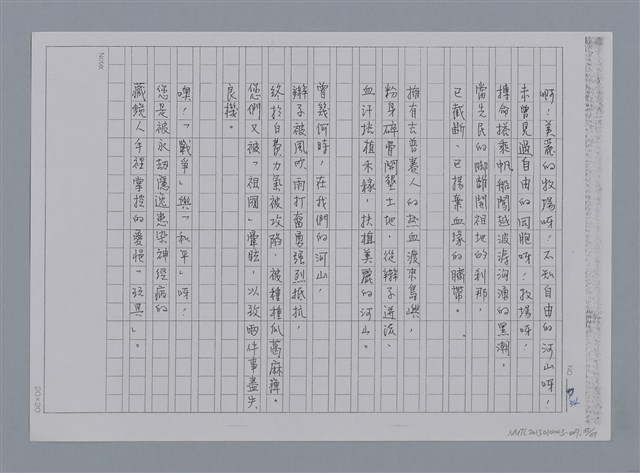 啊！美麗的牧場呀！不知自由的河山呀！
未曾見過自由的同胞呀！牧場呀！
搏命搭乘帆船闖越波濤洶湧的黑潮，
當先民的腳離開祖地的剎那，
已截斷、已揚棄血緣的臍帶。
擁有去普賽人的熱血渡來島嶼，
粉身碎骨開墾土地，從辮子逆流、
血汗培植禾稼，扶植美麗的河山。
曾幾何時，在我們的河山，
辮子被風吹雨打奮勇強烈抵抗，
終於白費力氣被攻陷，被種種瓜葛麻痺。
您們又被「祖國」暈眩，以致兩件事盡失
良機。
噢！「戰爭」與「和平」呀！
您是被永劫隱逸患染神經病的
藏鏡人手裡掌控的愛情「玩具」。
20×20